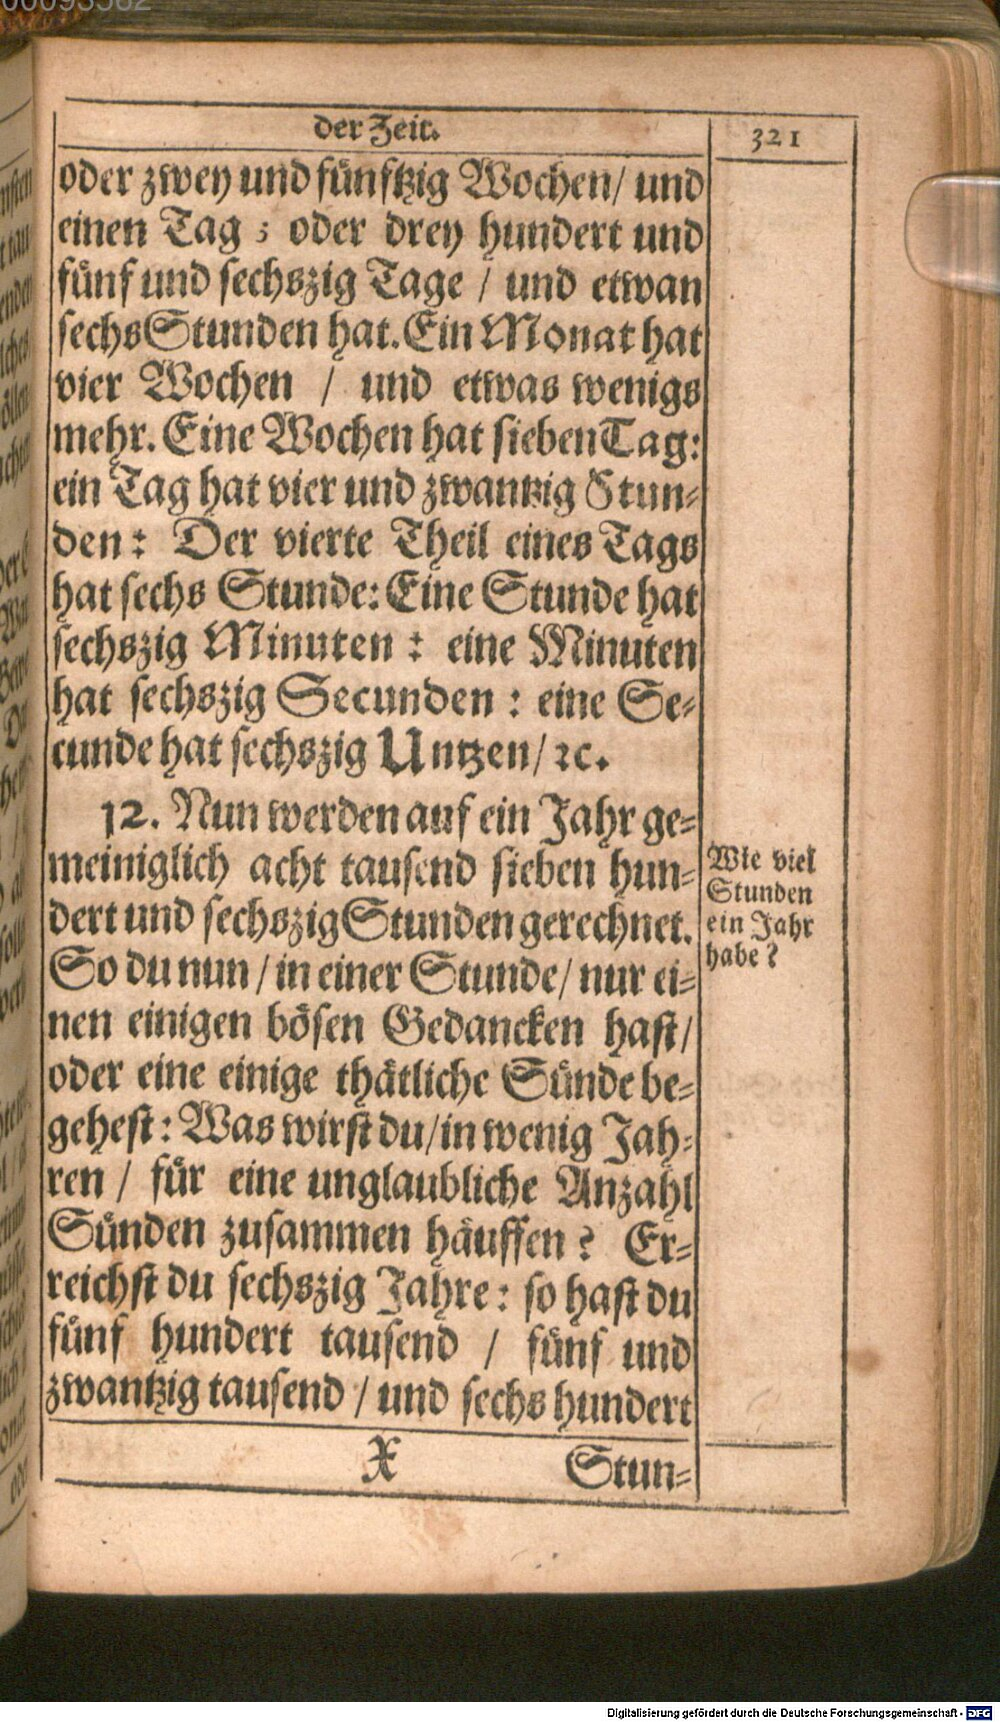 00093562
der Zeit.
321
oder zwey und fünfftzig Wochen/ und
einen Tag ; oder drey hundert und
fünf und sechszig Tage / und etwan
sechs Stunden hat. Ein Monat hat
vier Wochen / und etwas wenigs
mehr. Eine Wochen hat sieben Tag:
ein Tag hat vier und zwantzig Stun-
den: Der vierte Theil eines Tags
hat sechs Stunde: Eine Stunde hat
sechszig Minuten : eine Minuten
hat sechszig Secunden : eine Se-
cunde hat sechszig Untzen/ ꝛc.
12. Nun werden auf ein Jahr ge-
meiniglich acht tausend sieben hun-
dert und sechszig Stunden gerechnet.
So du nun / in einer Stunde/ nur ei-
nen einigen bösen Gedancken hast/
oder eine einige thätliche Sünde be-
gehest: Was wirst du/ in wenig Jah-
ren / für eine unglaubliche Anzahl
Sünden zusammen häuffen? Er-
reichst du sechszig Jahre: so hast du
fünf hundert tausend / fünf und
zwantzig tausend / und sechs hundert
X
Stun-
Wie viel
Stunden
ein Jahr
habe?
Digitalisierung gefördert durch die Deutsche Forschungsgemeinschaft - DFG